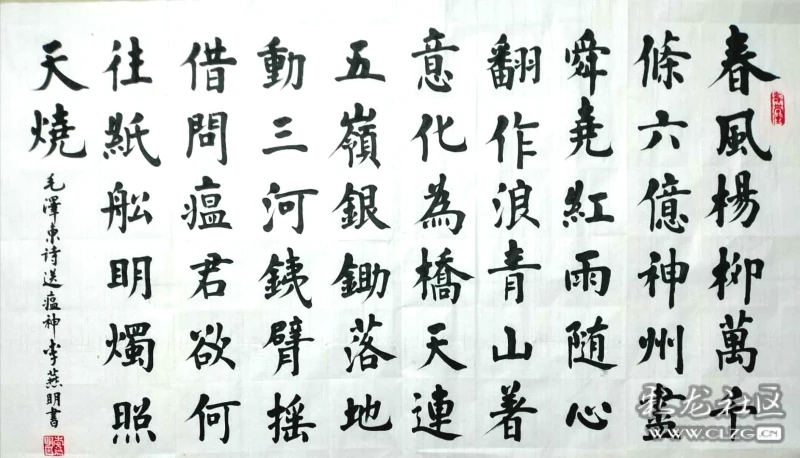 春風楊柳萬千
條六億神州盡
舜堯紅雨随心
翻作浪青山着
意化為橋天連
五嶺銀鋤落地
動三河銕臂摇
借問瘟君欲何
往紙舩明燭照
天燒
毛澤東诗送瘟神 李燕明書
彩龙社区
WWW.CLZG.CN